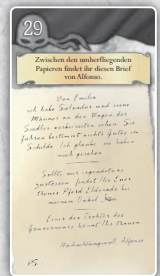 29
Zwischen den umherfliegenden
Papieren findet ihr diesen Brief
von Alfonso.
Von Emilio
ich habe Salvador und seine
Männer an den Wagen der
Siedler vorbeireiten sehen. Sie
führen bestimmt nichts Gutes im
Schilde. Ich glaube sie haben
mich gesehen
Sollte mir irgendetwas
zustossen findet Ihr Euer
treues Pferd Eldorado bei
meinem Onkel
Einer der Töchter des
Gouverneurs kennt Ihr trauen
Hochachtungsvoll Alfonso
PS.